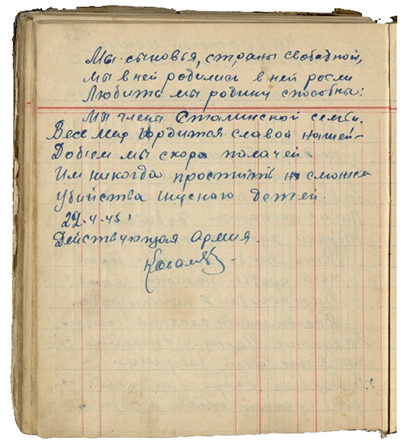 Мы сыновья, страны свободной,
мы в ней родились в ней росли
Любить мы родину способны:
Мы члены Сталинской семьи.
Весь мир гордится славой нашей-
Добьем мы скоро палачей
Им никогда простить не сможем
Убийства гнусного детей.
22-4-45г
Действующая Армия.